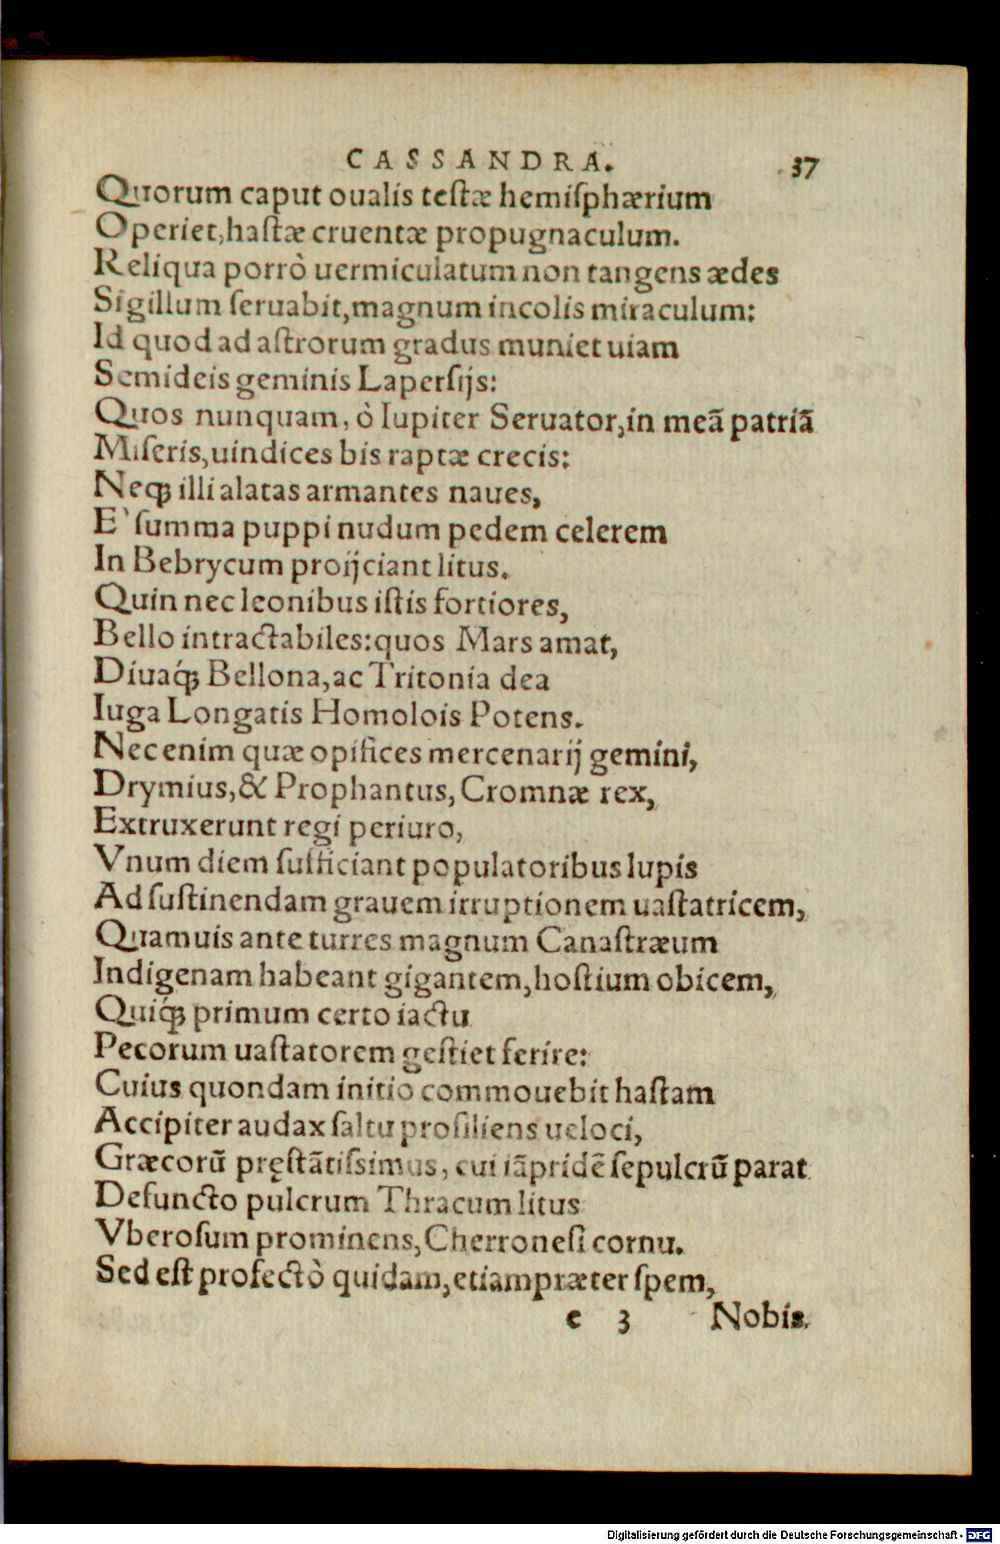 CASSANDRA. 37
Quorum caput oualis testæ hemisphærium
Operiet, hastæ cruentæ propugnaculum.
Reliqua porrò uermiculatum non tangens ædes
Sigillum seruabit, magnum incolis miraculum:
Id quod ad astrorum gradus muniet uiam
Semideis geminis Lapersijs:
Quos nunquam, ò Iupiter Seruator, in meã patriã
Miseris, uindices bis raptæ crecis:
Neqꝫ illi alatas armantes naues,
E` summa puppi nudum pedem celerem
In Bebrycum proijciant litus.
Quin nec leonibus istis fortiores,
Bello intractabiles: quos Mars amat,
Diuaqꝫ́ Bellona, ac Tritonia dea
Iuga Longatis Homolois Potens.
Nec enim quæ opifices mercenarij gemini,
Drymius, & Prophantus, Cromnæ rex,
Extruxerunt regi periuro,
Vnum diem sufficiant populatoribus lupis
Ad sustinendam grauem irruptionem uastatricem,
Quamuis ante turres magnum Canastræum
Indigenam habeant gigantem, hostium obicem,
Quiqꝫ́ primum certo iactu
Pecorum uastatorem gestiet ferire:
Cuius quondam initio commouebit hastam
Accipiter audax saltu prosiliens ueloci,
Græcorũ pręstãtissimus, cui iãpridẽ sepulcrũ parat
Defuncto pulcrum Thracum litus
Vberosum prominens, Cherronesi cornu.
Sed est profectò quidam, etiam præter spem,
e 3 Nobis.
Digitalisierung gefördert durch die Deutsche Forschungsgemeinschaft - DFG